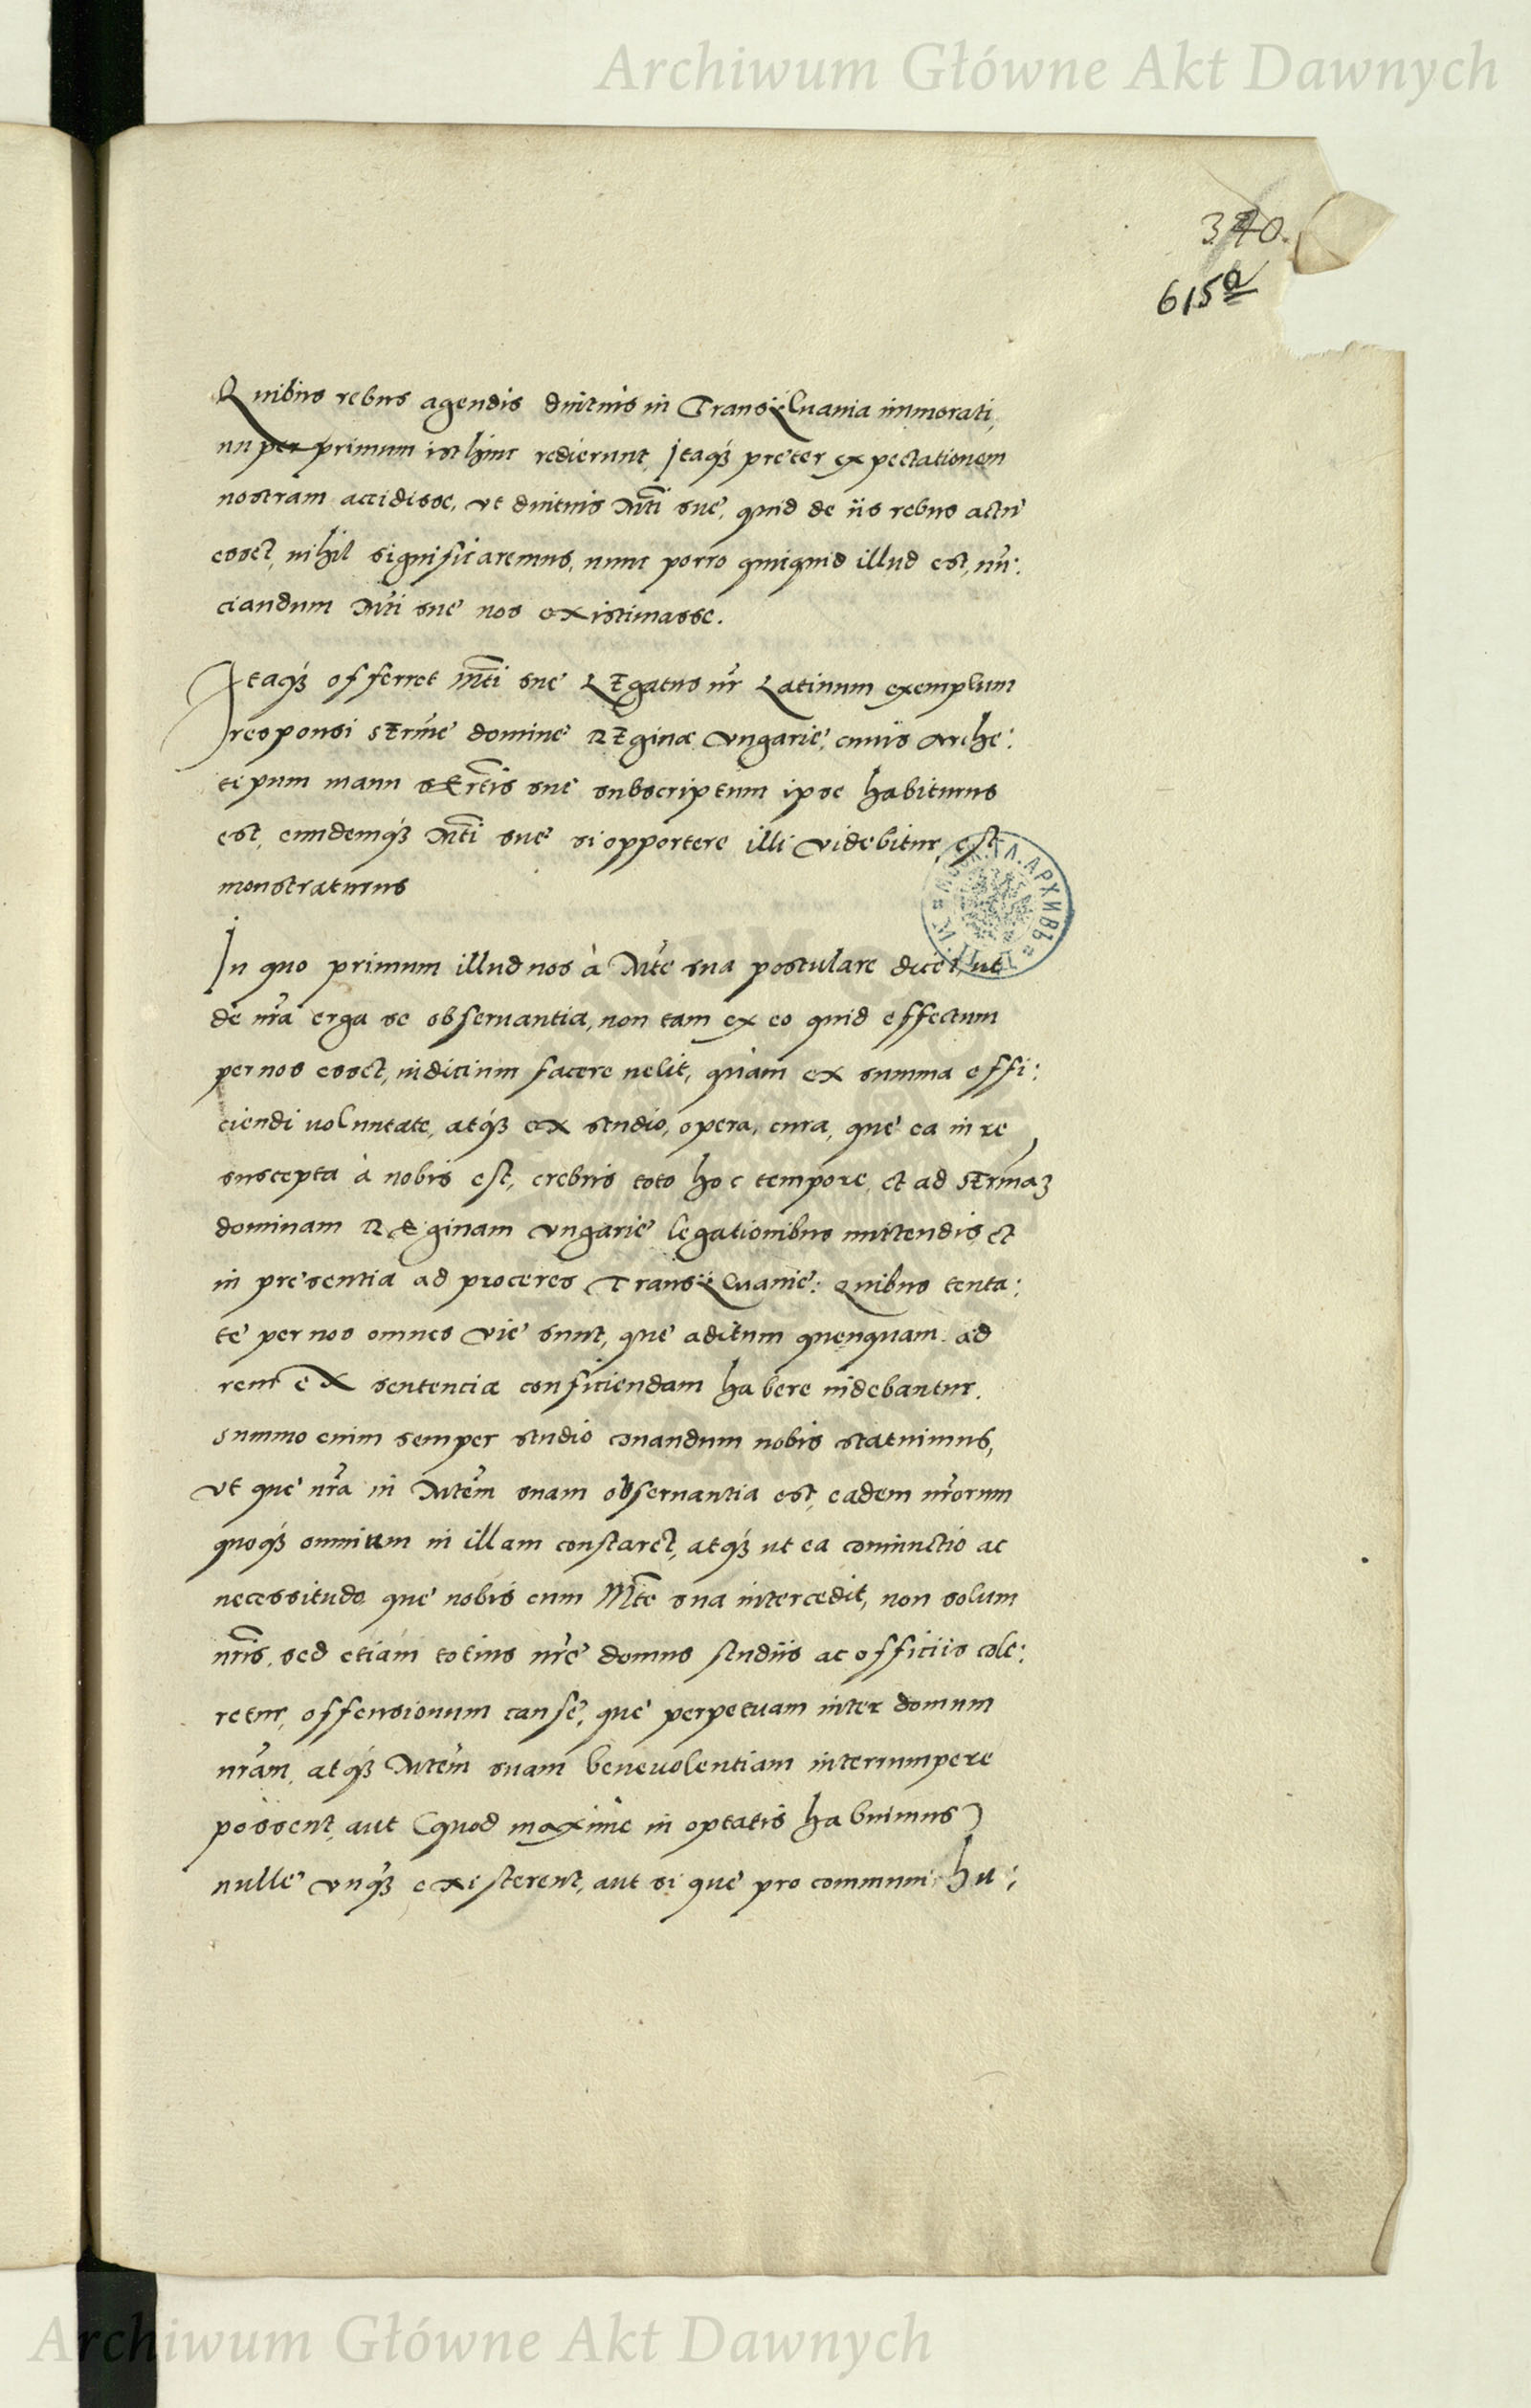 Archiwum Główne Akt Dawnych
340.
615a
Quibus rebus agendis diutius in Transÿluania immorati,
nuper primum isthinc redierunt, Itaqȝ preter expectationem
nostram accidisse, vt diutius Mti sue, quid de iis rebus actu
esset, nihil significaremus, nunc porro quicquid illud est, nū:
ciandum Mti sue nos existimasse.
Itaqȝ offerret Mti sue Legatus nr̄ Latinum exemplum
responsi sermē domine Reginæ vngarie, cuius Arche:
tipum manu sertis sue subscriptum ipse habiturus
est, eundemqȝ Mti sue si opportere illi videbitur, est
monstraturus
In quo primum illud nos à Mte sua postulare dicet, ut
de nr̄a erga se obseruantia, non tam ex eo quid effectum
per nos esset, iudicium facere uelit, quàm ex summa effi:
ciendi uoluntate, atqȝ ex studio, opera, cura, que ea in re
suscepta à nobis est, crebris toto hoc tempore, et ad sermaȝ
dominam Reginam vngarie legationibus mittendis, et
in presentia ad proceres Transÿluanie: Quibus tenta:
te per nos omnes vie sunt, que aditum quenquam ad
rem ex sentencia conficiendam habere uidebantur.
summo enim semper studio conandum nobis statuimus,
vt que nr̄a in Mtem̄ suam obseruantia est, eadem nr̄orum
quoqȝ omnium in illam constaret, atqȝ ut ea coniunctio ac
necessitudo que nobis cum Mte sua intercedit, non solum
nr̄is, sed etiam totius nr̄e domus studiis ac officiis cole:
retur, offensionum cause, que perpetuam inter domum
nr̄am, atqȝ Mtem̄ suam beneuolentiam interrumpere
possent, aut (quod maxime in optatis habuimus)
nulle vnqȝ existerent, aut si que pro communi hu:
Archiwum Główne Akt Dawnych